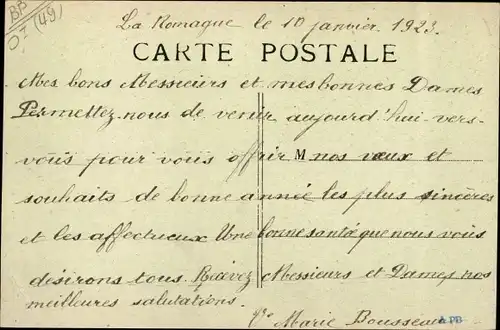 BP
07 (49)
La Romagne le 10 janvier 1923.
CARTE POSTALE
Mes bons Messieurs et mes bonnes Dames
Permettez-nous de venir aujourd'hui vers
vous pour vous offrir M nos vœux et
souhaits de bonne année les plus sincères
et les affectueux Une bonne santé que nous vous
désirons tous. Recevez Messieurs et Dames nos
meilleures salutations.
Vve Marie Bousseau
APB